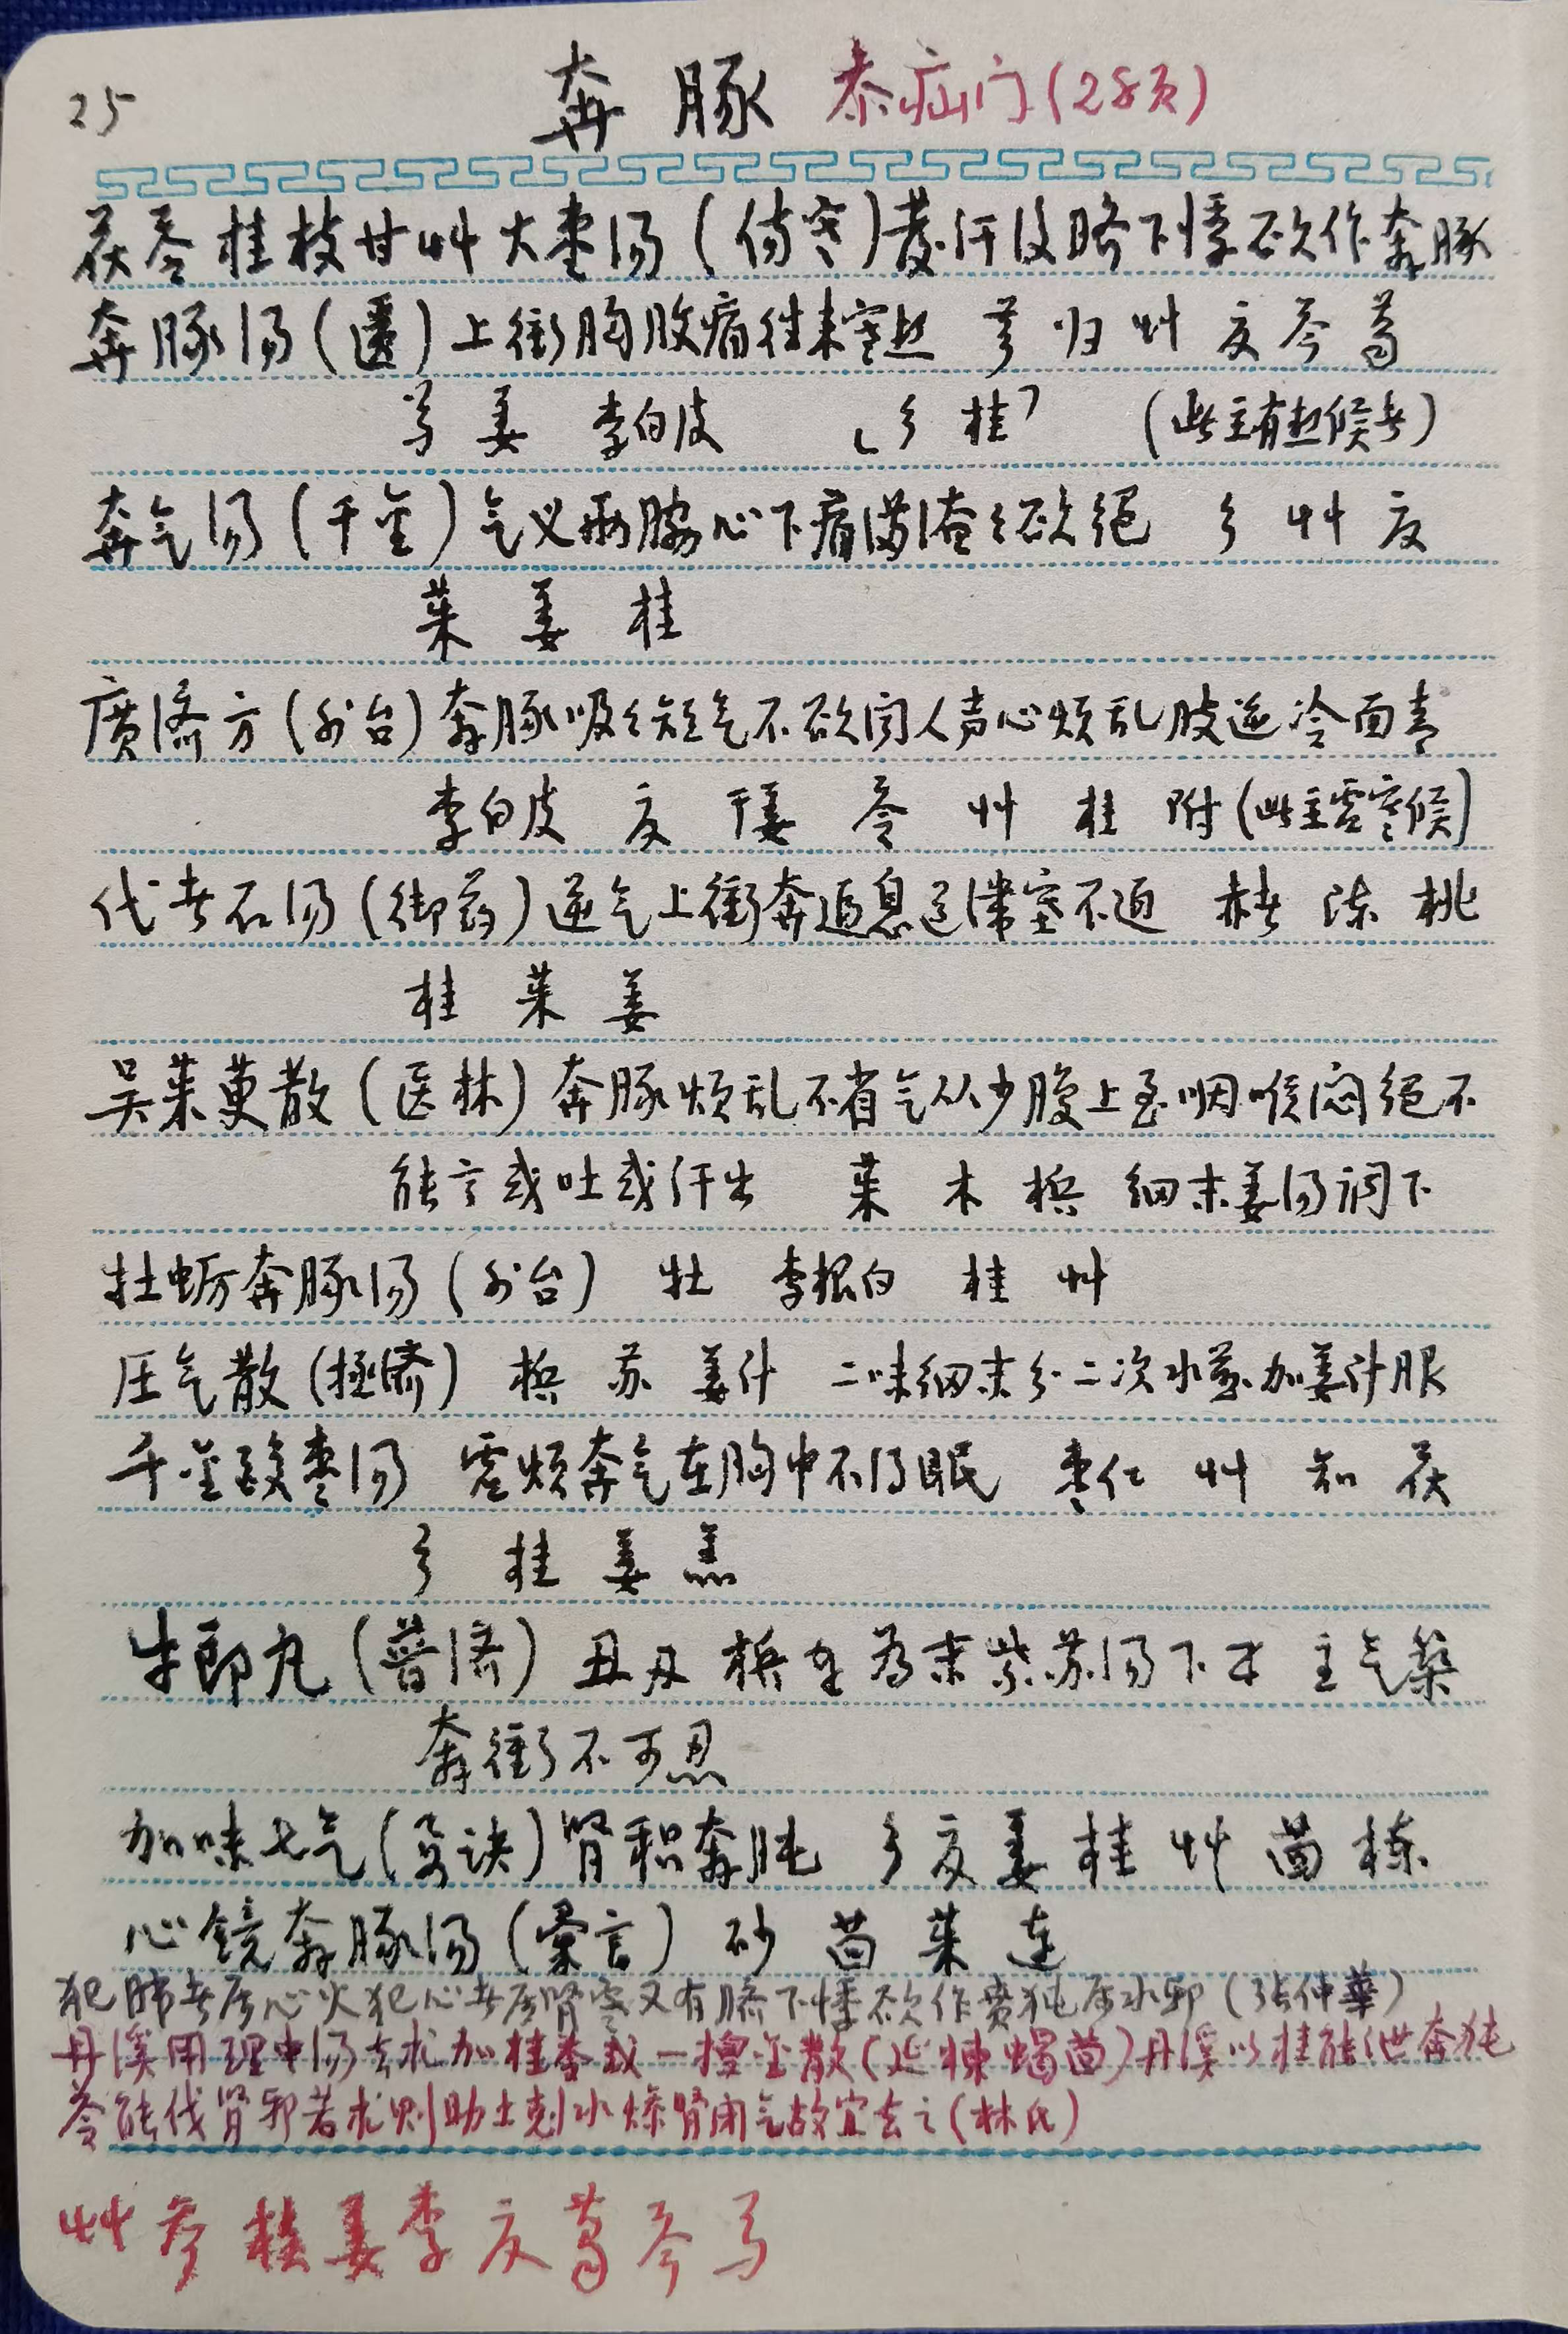 25 奔豚 参疝门(28页)
茯苓桂枝甘艸大枣汤(伤寒)发汗后脐下悸欲作奔豚
奔豚汤(匮)上衝胸腹痛往来寒热 芎 归 艸 夏 芩 葛
芍 姜 李白皮 桂 (此主有热候者)
奔气汤(千金)气义两胁心下痛满淹々欲绝 参 艸 夏
萸 姜 桂
廣濟方(外台)奔豚吸々短气不欲闻人声心烦乱肢逆冷面青
李白皮 夏 干姜 苓 艸 桂 附(此主虚寒候)
代者石汤(御药)逆气上衝奔逼息道滞塞不通 赭 陈 桃
桂 茱 姜
吴茱萸散(医林)奔豚烦乱不省气从少腹上至咽喉闷绝不
能言或吐或汗出 茱 木 槟 细末姜汤调下
牡蛎奔豚汤(外台) 牡 李根白 桂 艸
压气散(拯濟) 槟 苏 姜汁 二味细末分二次水煎加姜汁服
千金酸枣汤 虚烦奔气在胸中不得眠 枣仁 艸 知 茯
参 桂 姜 羔
牛郎丸(普濟) 丑 槟 为末紫苏汤下 主气築
奔衝不可忍
加味七气(易诀)肾积奔肫 参 夏 姜 桂 艸 茴 楝
心鏡奔豚汤(彙言) 砂 茴 茱 連
犯肺者属心火犯心者属肾寒又有脐下悸欲作贲独属水邪(张仲華)
丹溪用理中汤去朮加桂苓或一捏金散(延楝蝎茴)丹溪以桂能泄奔独
苓能伐肾邪若朮则助土剋水燥肾闭气故宜去之(林氏)
艸 参 桂 姜 李 夏 葛 芩 芎